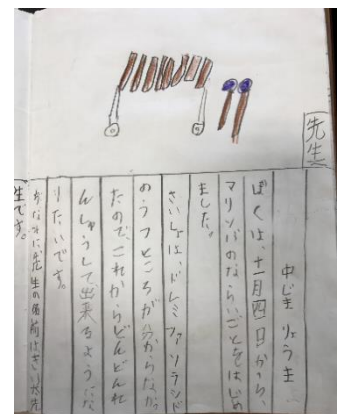 先生
ぼくは、十一月四日から、
マリンバのならいごとをはじめ
ました。
さいしょは、ドレミファソラシド
のうつところが分からなか
たので、これからどんどんれ
んしゅうして出来るようにな
りたいです。
ちなみに、先生の名前は先
生です。